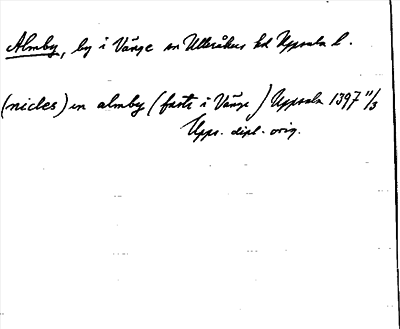 Almby, by i Vänge sn Ulleråkers hd Uppsala l.
(nicles) in almby (fasti i Vänge) Uppsala 1397 11/3
Upps. dipl. orig.